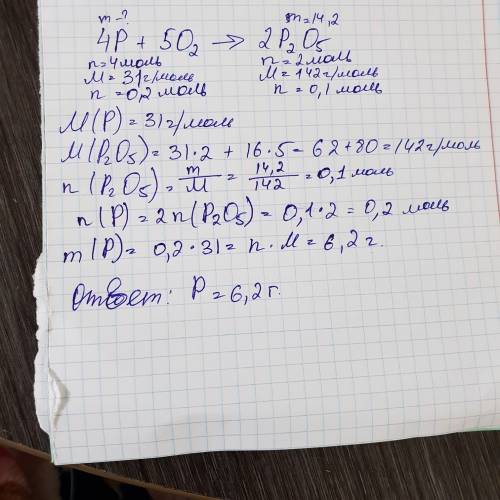 m-? m=14,2
4P + 5O₂ → 2P₂O₅
n=4моль n=2моль
M=31г/моль M=142г/моль
n=0,2 моль n=0,1 моль
M(P)=31г/моль
M(P₂O₅)=31·2 + 16·5 = 62+80=142г/моль
n(P₂O₅)= m/M = 14,2/142 =0,1 моль
n(P)=2n(P₂O₅)=0,1·2=0,2 моль
m(P)=0,2·31=n·M=6,2г.
Ответ: P=6,2г.